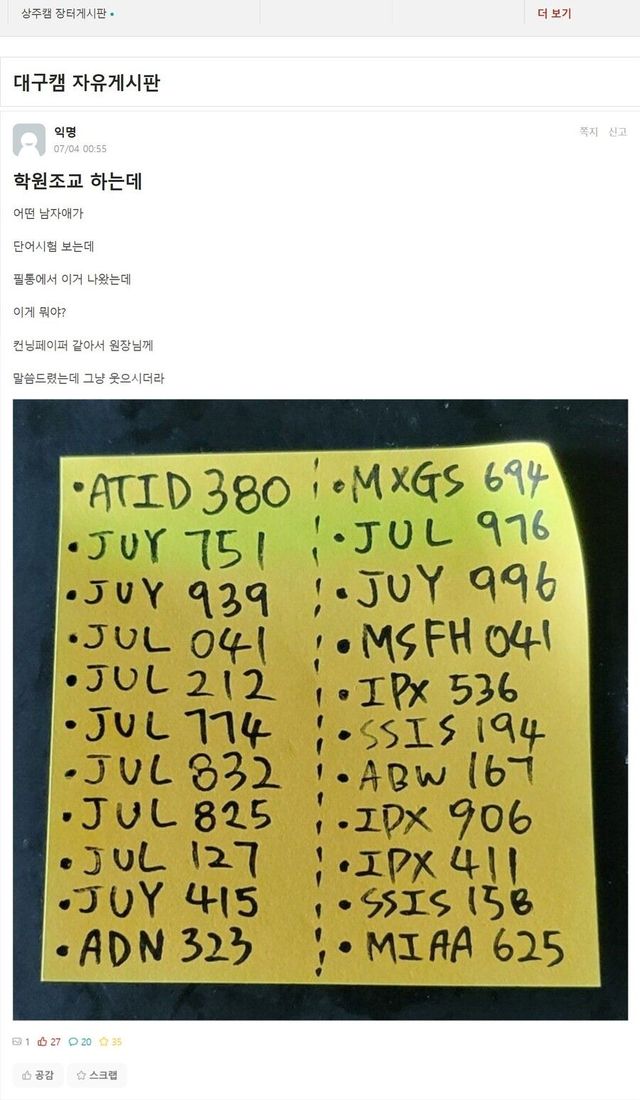 상주캠 장터게시판
더 보기
대구캠 자유게시판
익명
쪽지 신고
07/04 00:55
학원조교 하는데
어떤 남자애가
단어시험 보는데
필통에서 이거 나왔는데
이게 뭐야?
컨닝페이퍼 같아서 원장님께
말씀드렸는데 그냥 웃으시더라
• ATID 380
• JUY 751
• JUY 939
• JUL 041
• JUL 212
• JUL 774
• JUL 832
• JUL 825
• JUL 127
• JUY 415
• ADN 323
• MXGS 694
• JUL 976
• JUY 996
• MSFH 041
• IPX 536
• SSIS 194
• ABW 167
• IPX 906
• IPX 411
• SSIS 158
• MIAA 625
1 27 20 35
공감 스크랩